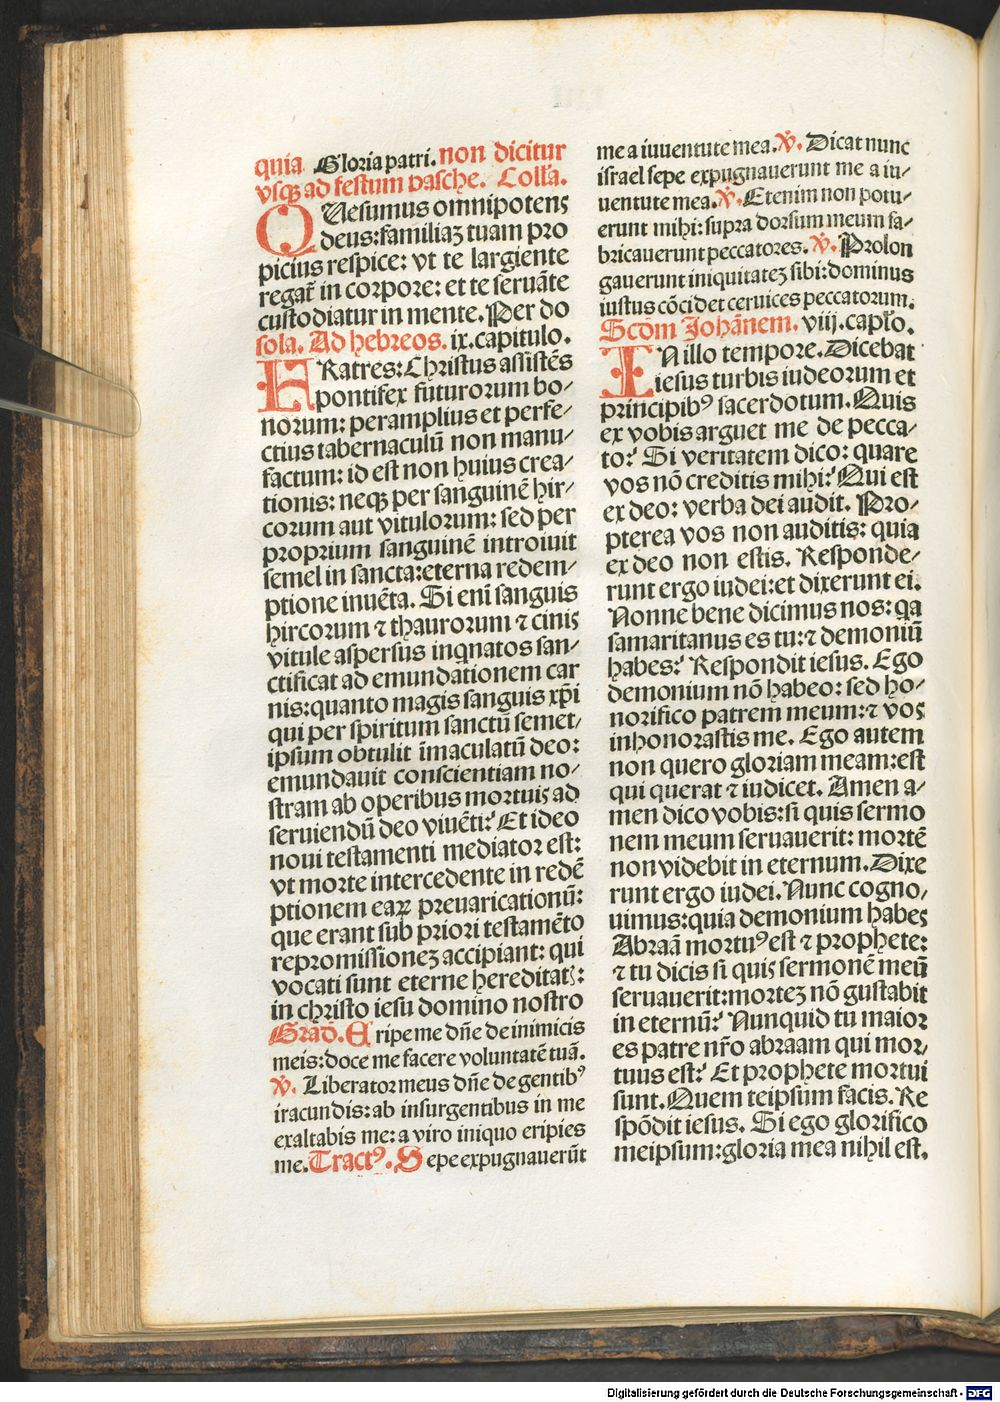 quia Gloria patri. non dicitur
vsqꝫ ad festum pasche. Coll'a.
QUesumus omnipotens
deus: familiaꝫ tuam pro
picius respice: vt te largiente
regat᷑ in corpore: et te seruãte
custodiatur in mente. Per do
sola. Ad hebreos. ix. capitulo.
FRatres: Christus assistẽs
pontifex futurorum bo⸗
norum: per amplius et perfe⸗
ctius tabernaculũ non manu⸗
factum: id est non huius crea⸗
tionis: neqꝫ per sanguinẽ hir⸗
corum aut vitulorum: sed per
proprium sanguinẽ introiuit
semel in sancta: eterna redem⸗
ptione inuẽta. Si enĩ sanguis
hircorum ⁊ thaurorum ⁊ cinis
vitule aspersus inqnatos san⸗
ctificat ad emundationem car
nis: quanto magis sanguis xp̃i
qui per spiritum sanctũ semet⸗
ipsum obtulit ĩmaculatũ deo:
emundauit conscientiam no⸗
stram ab operibus mortuis ad
seruiendũ deo viuẽti? Et ideo
noui testamenti mediator est:
vt morte intercedente in redẽ
ptionem eaꝝ preuaricationũ:
que erant sub priori testamẽto
repromissioneꝫ accipiant: qui
vocati sunt eterne hereditatꝭ:
in christo iesu domino nostro
Grad̃. Eripe me dñe de inimicis
meis: doce me facere voluntatẽ tuã.
℣. Liberator meus dñe de gentibꝰ
iracundis: ab insurgentibus in me
exaltabis me: a viro iniquo eripies
me. Tractꝰ. Sepe expugnauerũt
me a iuuentute mea. ℣. Dicat nunc
israel sepe expugnauerunt me a iu⸗
uentute mea. ℣. Etenim non potu⸗
erunt mihi: supra dorsum meum fa⸗
bricauerunt peccatores. ℣. Prolon
gauerunt iniquitateꝫ sibi: dominus
iustus cõcidet ceruices peccatorum.
Scd̃m Johãnem. viij. capl'o.
IN illo tempore. Dicebat
iesus turbis iudeorum et
principibꝰ sacerdotum. Quis
ex vobis arguet me de pecca⸗
to? Si veritatem dico: quare
vos nõ creditis mihi? Qui est
ex deo: verba dei audit. Pro⸗
pterea vos non auditis: quia
ex deo non estis. Responde⸗
runt ergo iudei: et dixerunt ei.
Nonne bene dicimus nos: qa
samaritanus es tu: ⁊ demoniũ
habes? Respondit iesus. Ego
demonium nõ habeo: sed ho⸗
norifico patrem meum: ⁊ vos
inhonorastis me. Ego autem
non quero gloriam meam: est
qui querat ⁊ iudicet. Amen a⸗
men dico vobis: si quis sermo
nem meum seruauerit: mortẽ
non videbit in eternum. Dixe
runt ergo iudei. Nunc cogno⸗
uimus: quia demonium habes
Abraã mortuꝰ est ⁊ prophete:
⁊ tu dicis si quis sermonẽ meũ
seruauerit: morteꝫ nõ gustabit
in eternũ? Nunquid tu maior
es patre nr̃o abraam qui mor⸗
tuus est? Et prophete mortui
sunt. Quem teipsum facis. Re
spõdit iesus. Si ego glorifico
meipsum: gloria mea nihil est.
Digitalisierung gefördert durch die Deutsche Forschungsgemeinschaft - DFG